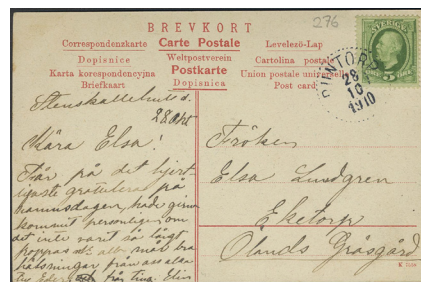 276
BREVKORT
Correspondenzkarte Carte Postale Levelező-Lap
Dopisnice Weltpostverein Cartolina postale
Karta korespondencyjna Postkarte Union postale universelle
Briefkaart Dopisnica Post card
SVERIGE
5
28
10
1910
28 Okt
Kära Elsa!
Får på det hjert-
ligaste gratulera på
namnsdagen, hade gerna
kommit personligen om
det inte varit så långt
hoppas att allt
hälsningar från oss alla
Fröken
Elsa Lundgren
Eketorp
Ölands Gräsgård